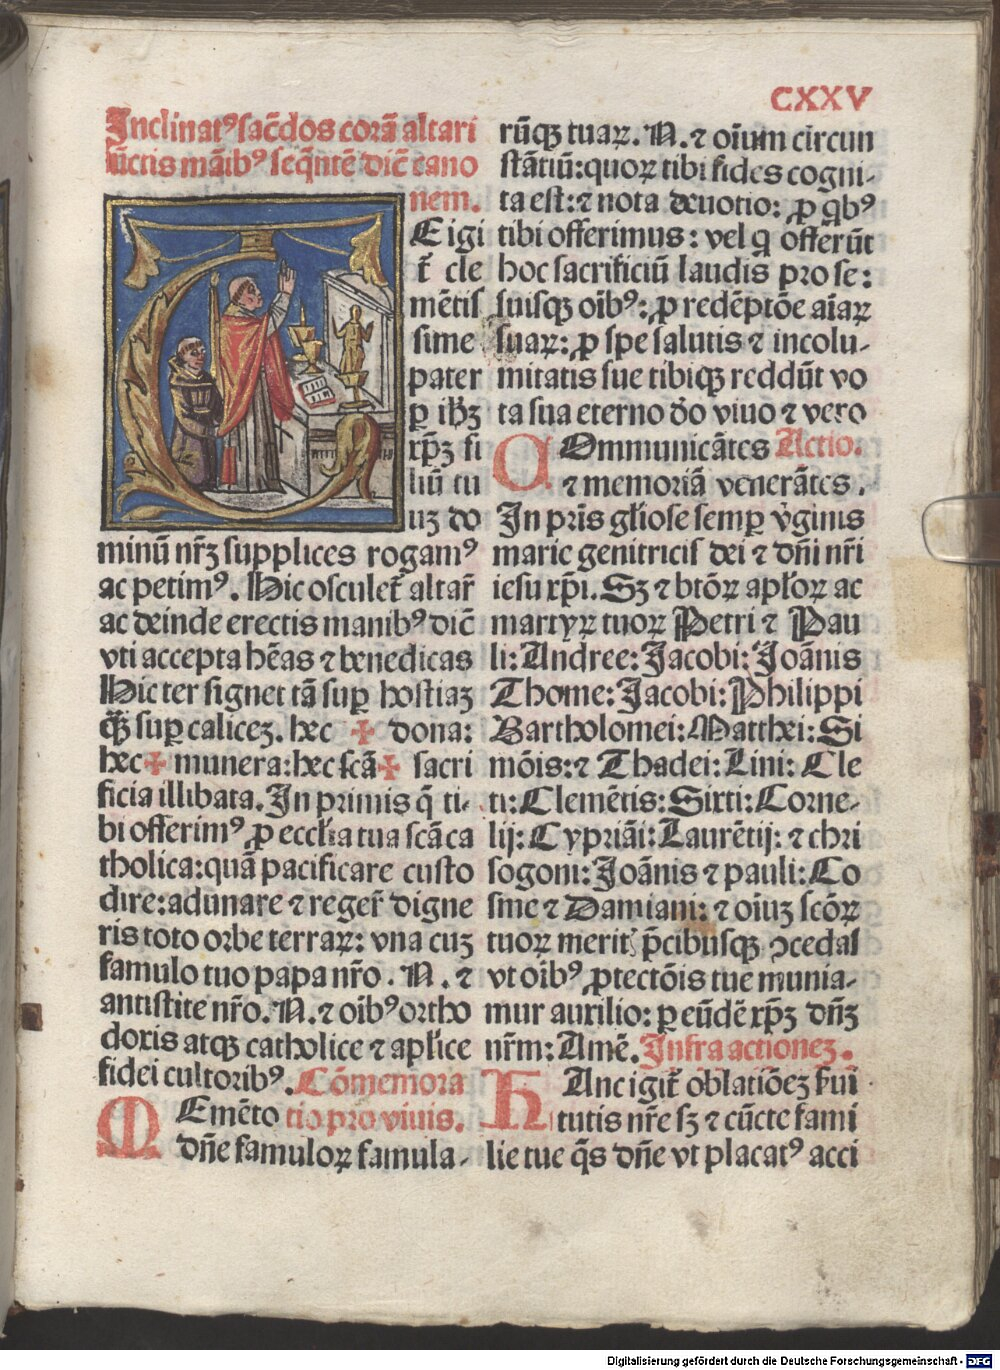 CXXV
Inclinatꝰ sac̄dos corā altari
iūctis māibꝰ seq̄ntē dic̄ cano
nem.
E igi
t̄ cle
mētis
sime
pater
ꝑ ihꝫ
xp̄ꝫ fi
liū tu
uꝫ do
minū nr̄ꝫ supplices rogamꝰ
ac petimꝰ. Hic osculet̄ altar̄
ac deinde erectis manibꝰ dic̄
vti accepta hēas ⁊ benedicas
Hic ter signet tā suꝑ hostiaꝫ
q̄ꝫ suꝑ calicez. hec ✠ dona:
hec ✠ munera: hec scā ✠ sacri
ficia illibata. In primis q̄ ti-
bi offerimꝰ ꝓ eccl̄ia tua scā ca
tholica: quā pacificare custo
dire: adunare ⁊ reger̄ digne
ris toto orbe terraꝝ: vna cuꝫ
famulo tuo papa nr̄o. N. ⁊
antistite nr̄o. N. ⁊ oībꝰ ortho
doxis atqꝫ catholice ⁊ apl̄ice
fidei cultoribꝰ. Cōmemora
MEmēto tio pro viuis.
dn̄e famuloꝝ famula-
rūqꝫ tuaꝝ. N. ⁊ oīum circun
stātiū: quoꝝ tibi fides cogni-
ta est: ⁊ nota deuotio: ꝓ qͥbꝰ
tibi offerimus: vel qͥ offerūt
hoc sacrificiū laudis pro se:
suisqꝫ oībꝰ: ꝓ redēptōe aīaꝝ
suaꝝ: ꝓ spe salutis ⁊ incolu-
mitatis sue tibiqꝫ reddūt vo
ta sua eterno dō viuo ⁊ vero
COmmunicātes Actio.
⁊ memoriā venerātes.
In prīs gl̄iose semꝑ v̄ginis
marie genitricis dei ⁊ dn̄i nr̄i
iesu xp̄i. Sꝫ ⁊ btōꝝ apl̄oꝝ ac
martyꝝ tuoꝝ Petri ⁊ Pau
li: Andree: Jacobi: Joānis
Thome: Jacobi: Philippi
Bartholomei: Matthei: Si
mōis: ⁊ Thadei: Lini: Cle
ti: Clemētis: Sixti: Corne-
lij: Cypriāi: Laurētij: ⁊ chri
sogoni: Joānis ⁊ pauli: Co
sme ⁊ Damiani: ⁊ oīuꝫ scōꝝ
tuoꝝ merit̄ p̄cibusqꝫ ꝯcedas
vt oībꝰ ꝓtectōis tue munia-
mur auxilio: ꝑ eūdē xp̄ꝫ dn̄ꝫ
nr̄m: Amē. Infra actionez.
HAnc igit̄ oblatiōeꝫ ẜui
tutis nr̄e sꝫ ⁊ cūcte fami
lie tue q̄s dn̄e vt placatꝰ acci
Digitalisierung gefördert durch die Deutsche Forschungsgemeinschaft - DFG